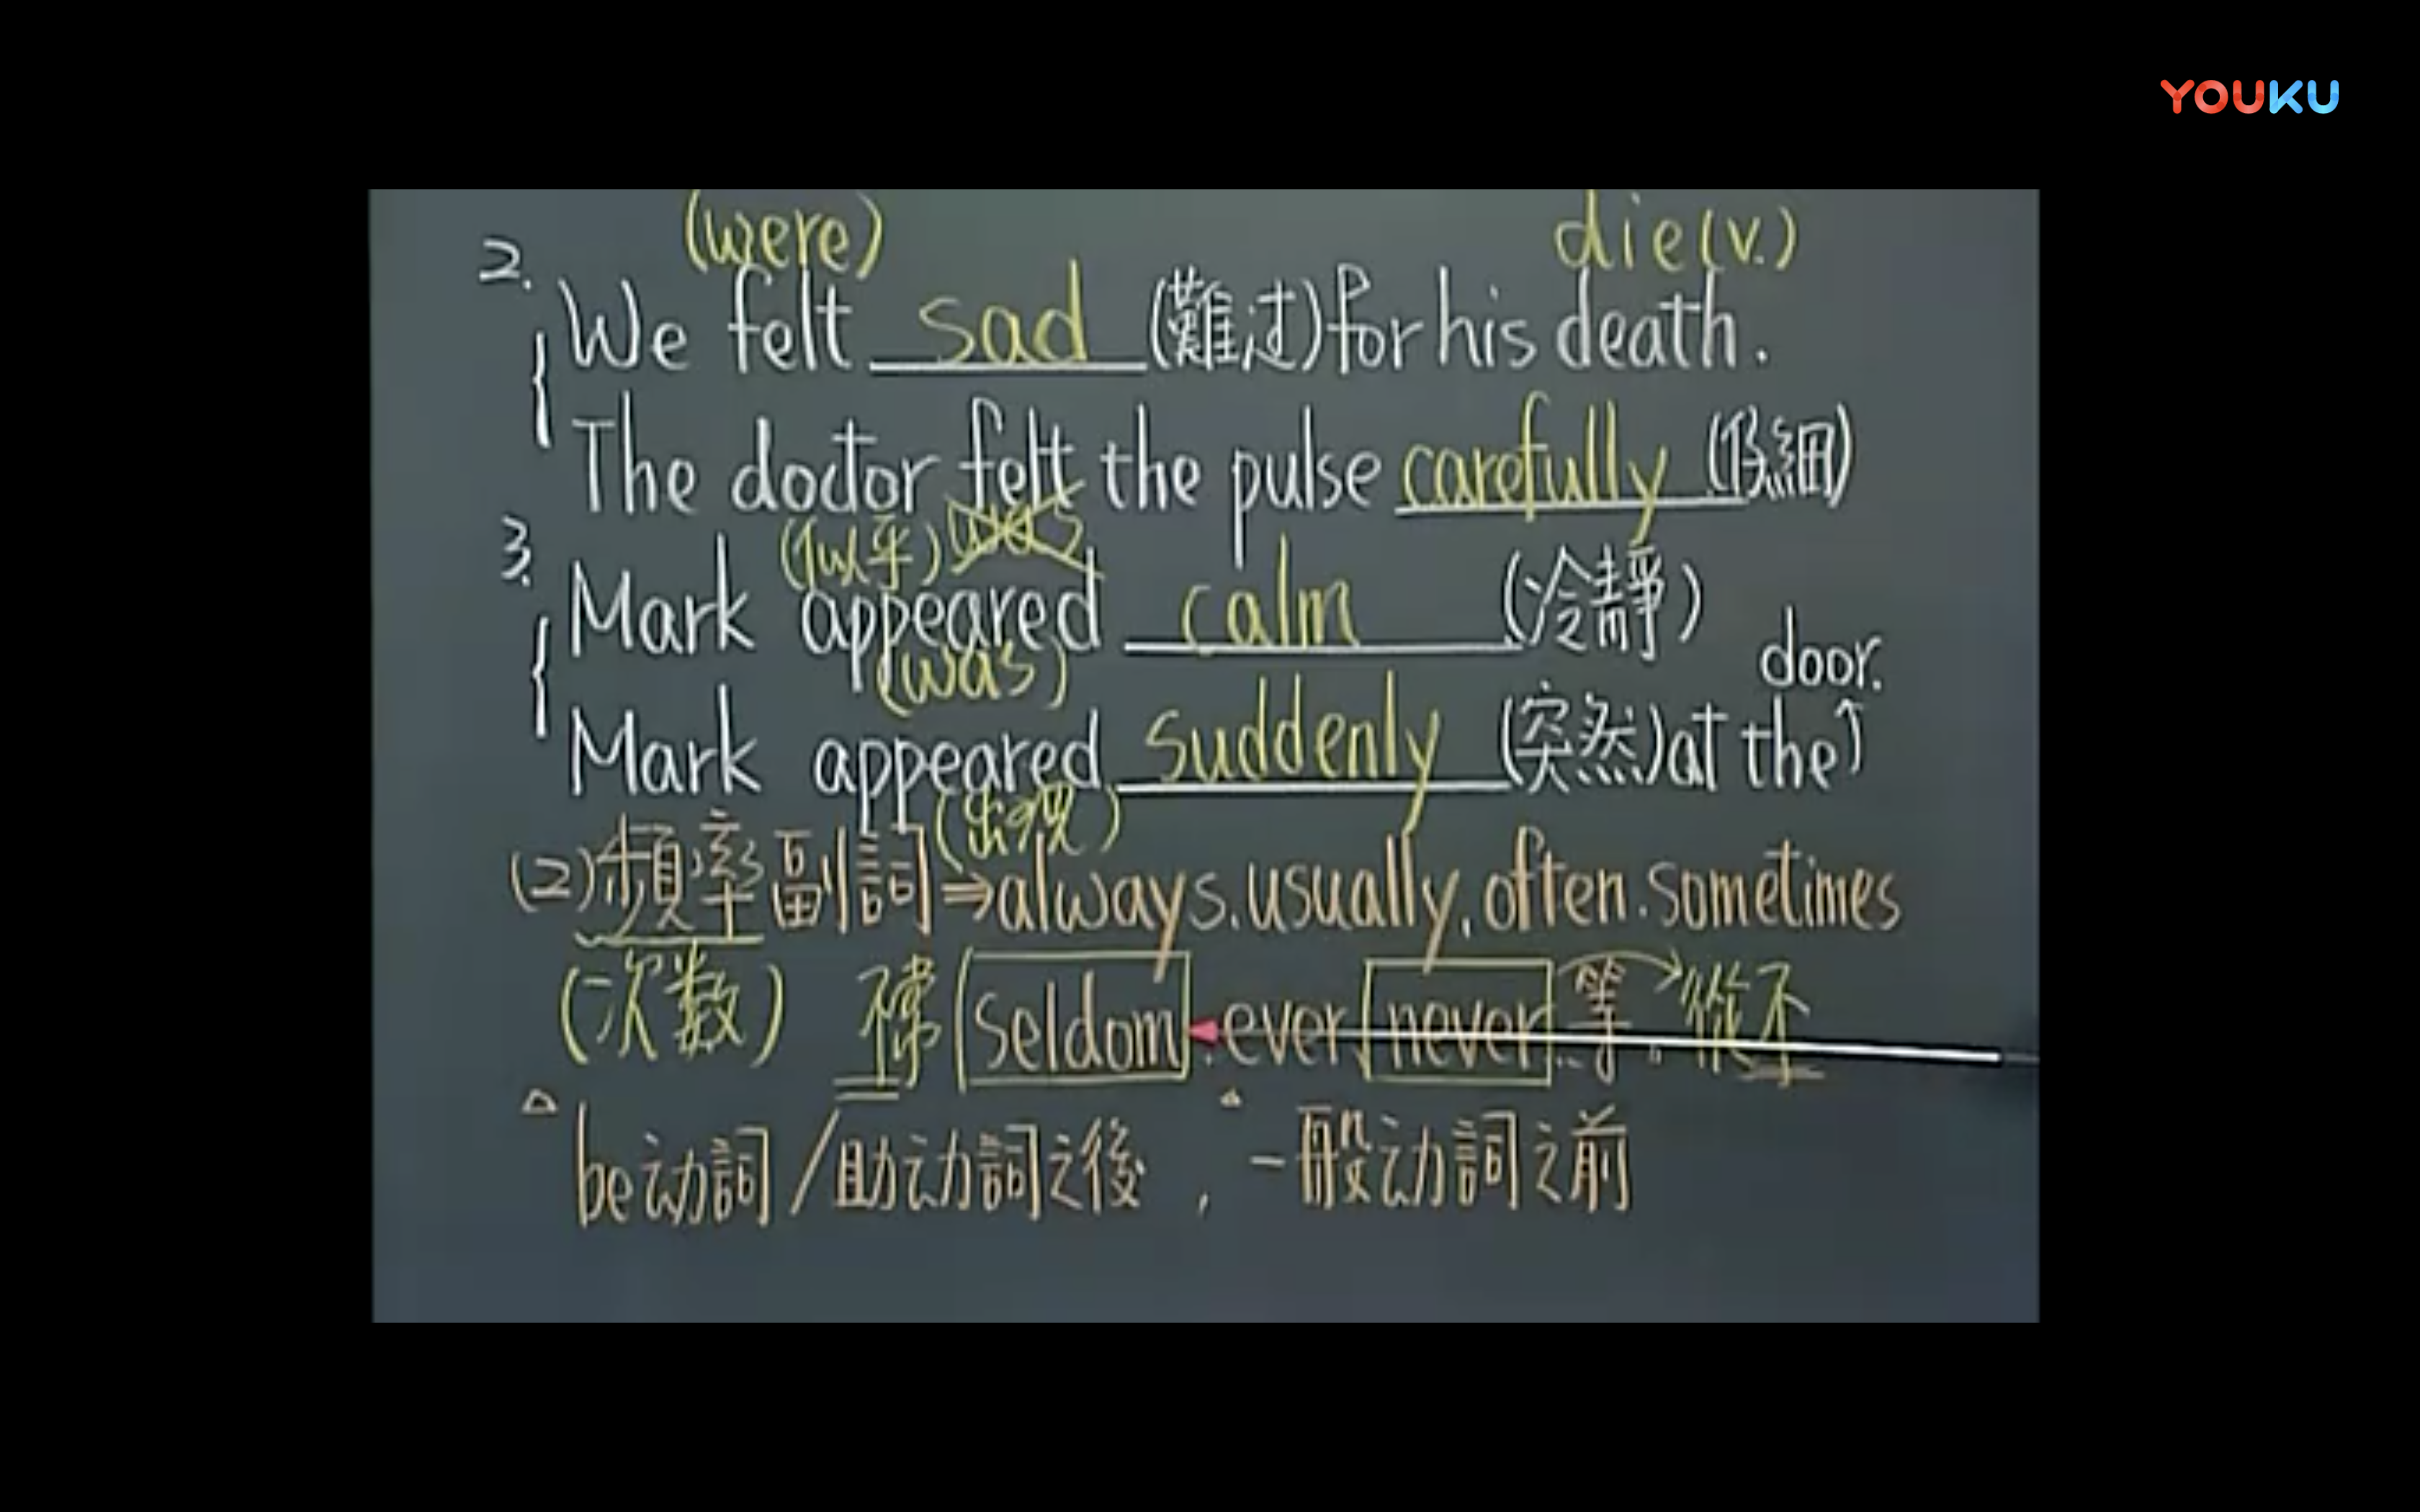 YOUKU
(were) die(v.)
2. We felt sad (難过)for his death.
The doctor felt the pulse carefully (仔細)
(似乎) was
3. Mark appeared calm (冷靜)
(was) door.
Mark appeared suddenly (突然)at the
(出现)
(2)頻率副詞⇒always.usually,often.sometimes
(次数) 不常 seldom.ever,never.等。從不
△be动詞/助动詞之後,△一般动詞之前